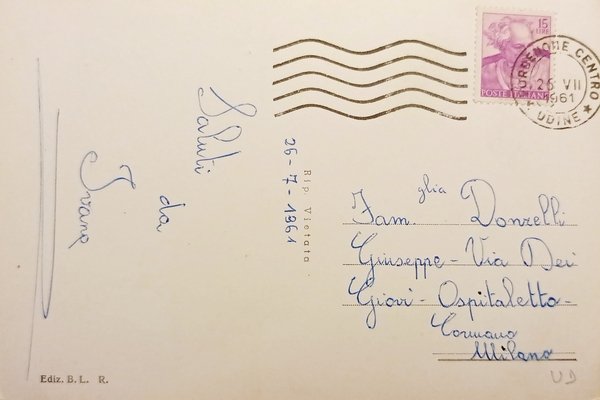 Saluti
da
Ivano
26-7-1961
Rip Vietata
15
LIRE
POSTE ITALIANE
PORDENONE CENTRO
26 VII
1961
UDINE ★
Fam.glia Donzelli
Giuseppe - Via Dei
Giovi - Ospitaletto -
Cormano
Milano
Ediz. B. L. R.
UD